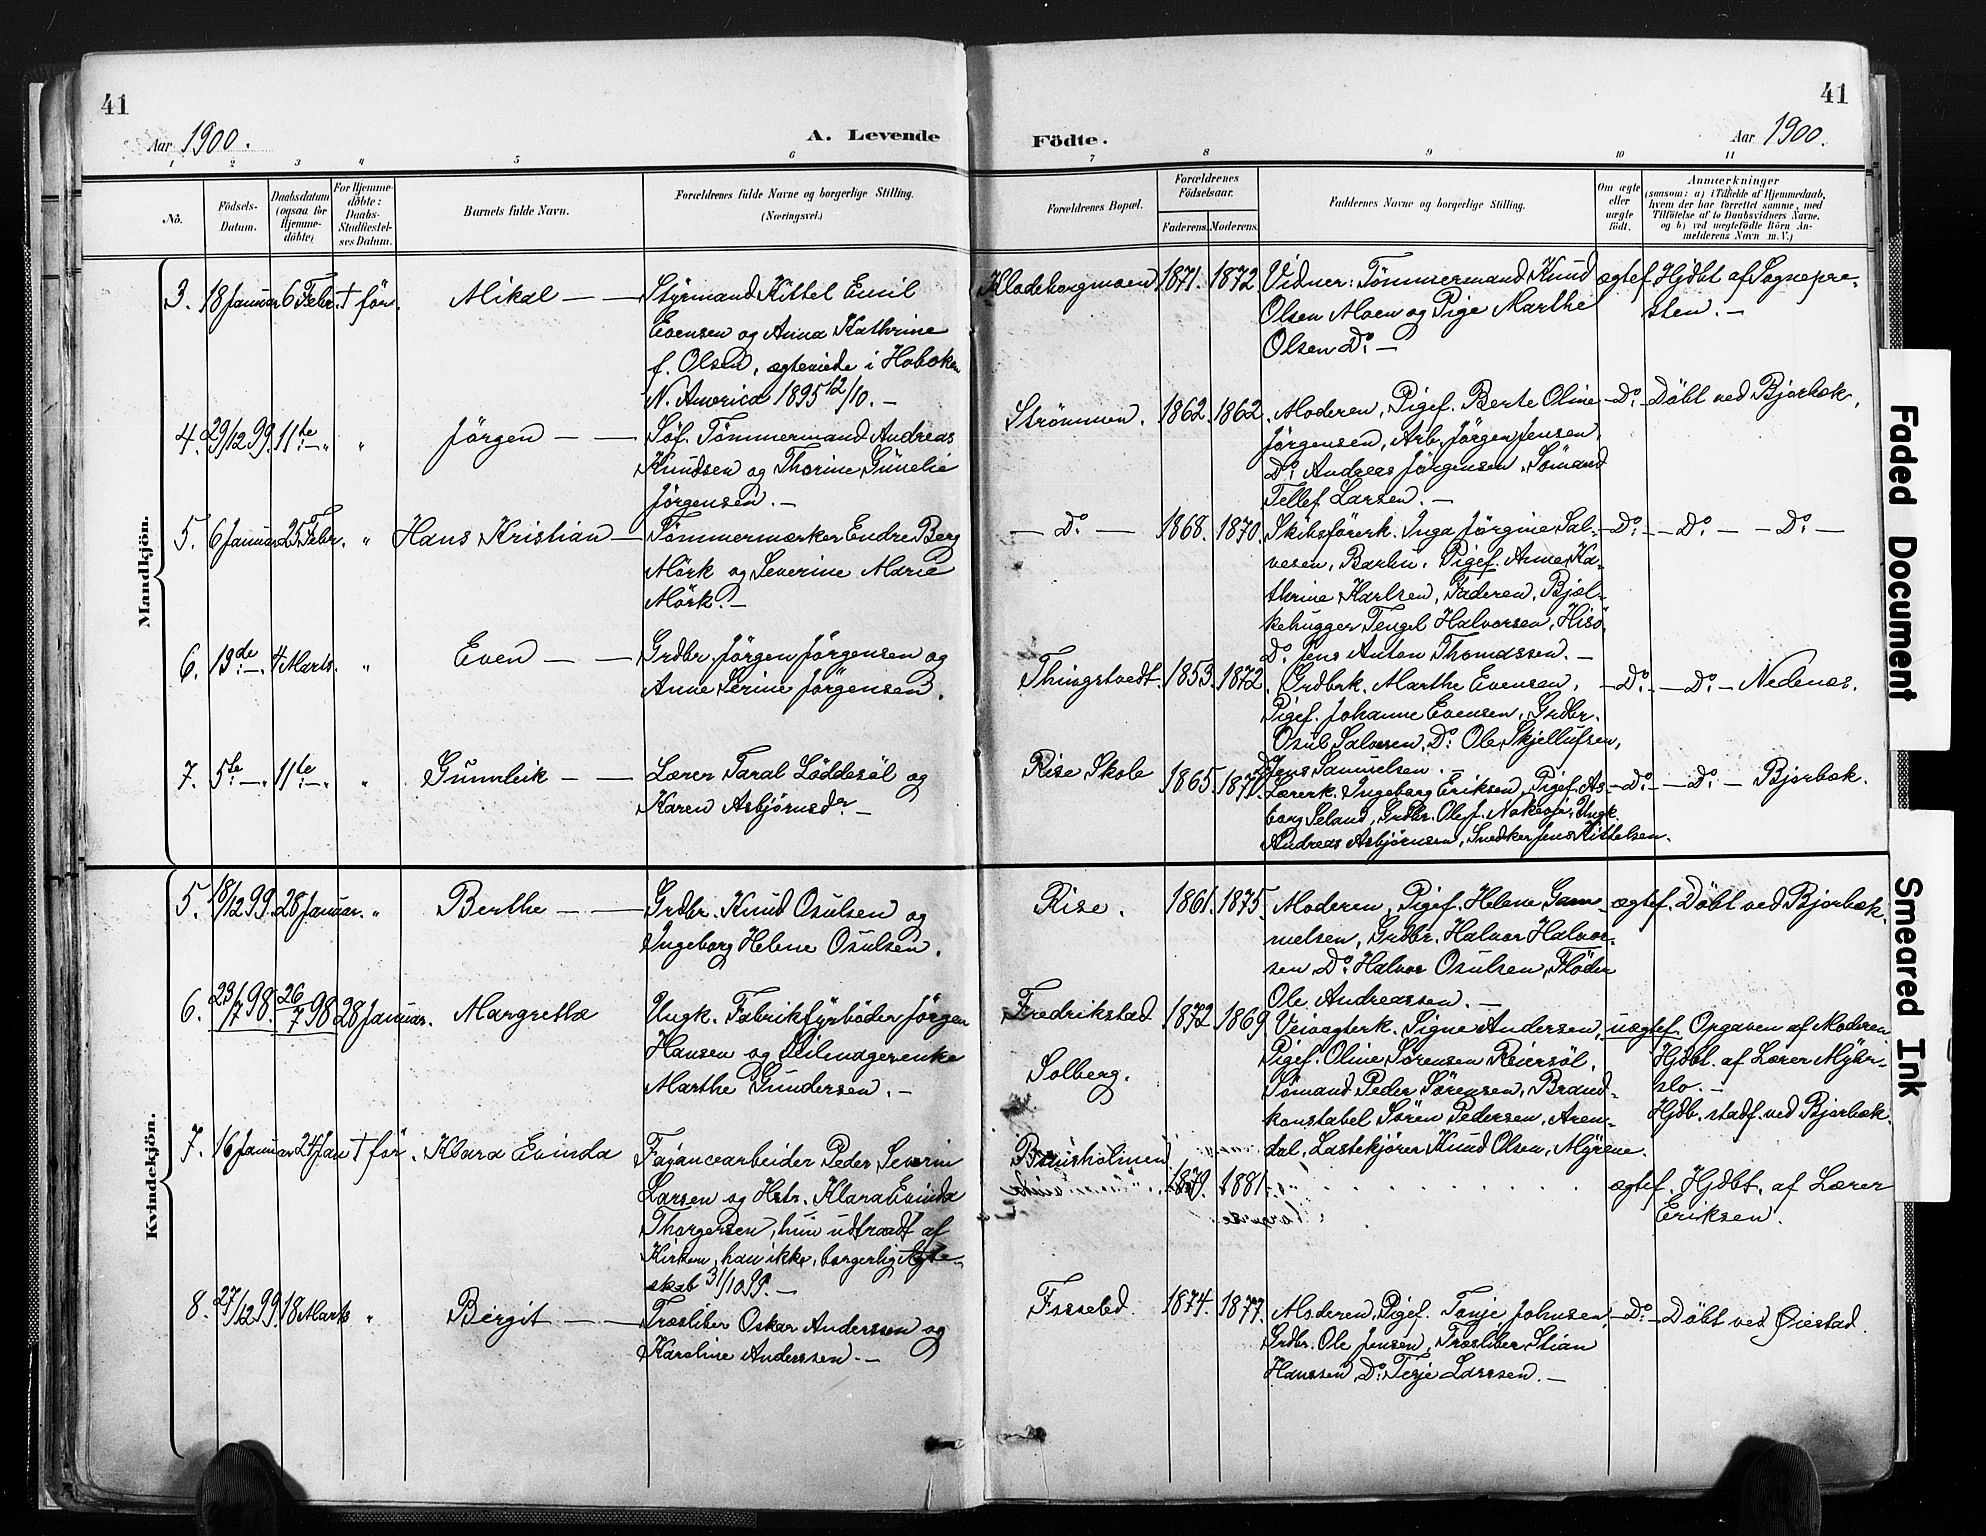 41
Aar 1900.
A. Levende
Födte.
41
Aar 1900.
1 2 3 4 5 6 7 8 9 10 11
No.
Födsels-
Datum.
Daabsdatum
(ogsaa for
Hjemme-
döbte)
For Hjemme-
döbte:
Daabs-
Stadfæstel-
ses Datum.
Barnets fulde Navn.
Forældrenes fulde Navne og borgerlige Stilling.
(Næringsvei.)
Forældrenes Bopæl.
Forældrenes
Födselsaar.
Faderens. Moderens.
Faddernes Navne og borgerlige Stilling.
Om ægte
eller
uægte
födt.
Anmærkninger
(saasom: a) i Tilfælde af Hjemmedaab,
hvem der har forrettet samme, med
Tilföielse af to Daabsvidners Navne,
og b) ved uægtefödte Börn An-
melderens Navn m. V.)
Mandkjön.
3. 18 Januar 6 Febr. † för. Mikal
Styrmand Kittel Emil
Evensen og Anna Kathrine
f. Olsen, ægteviede i Hoboken
N. America 1895 12/10. —
Klodeborgmoen 1871. 1872
Vidner: Tømmermand Knud
Olsen Moen og Pige Marthe
Olsen Do. —
ægtef. Hjdbt af Sognepre-
sten. —
4. 29/12 99. 11te — " " Jörgen
Søf. Tömmermand Andreas
Knudsen og Thorine Gunelie
Jørgensen. —
Strömmen. 1862. 1862.
Moderen, Pigef. Berte Oline
Jørgensen, Arb. Jørgen Jensen,
Do. Andreas Jörgensen, Sømand
Tellef Larsen. —
Do. — Döbt ved Bjorbæk.
5. 6 Januar 25 Febr. " Hans Kristian
Tömmermærker Endre Berg
Mörk og Severine Marie
Mörk. —
— Do. — 1868. 1870.
Skibsförerk. Inga Jørgine Sal-
vesen, Barbu, Pigef. Anne Ka-
thrine Karlsen, Faderen, Bjæl-
kehugger Tengel Halvorsen, Hisö,
Do. Jens Anton Thomassen. —
— Do. — — Do. — — Do. —
6. 13de — 4 Marts. " Even
Grdbr. Jørgen Jørgensen og
Anne Serine Jørgensen.
Thingstvedt. 1853. 1872.
Grdbrk. Marthe Evensen,
Pigef. Johanne Evensen, Grdbr.
Osul Salvesen, Do. Ole Skjellufsen,
Jens Samuelsen. —
— Do. — — Do. — Nedenæs.
7. 5te — " 11te — " " Gunnleik
Lærer Taral Löddesöl og
Karen Asbjörnsdr. —
Rise Skole 1865. 1871.
Lærerk. Ingeborg Eriksen, Pigef. As-
borg Seland, Grdbr. Ole J. Nakksjø, Ungk.
Andreas Asbjørnsen, Snedker Jens Kittelsen.
— Do. — — Do. — Bjorbæk.
Kvindekjön.
5. 18/12 99. 28 Januar. " Berthe
Grdbr. Knud Osulsen og
Ingeborg Helene Osulsen.
Rise. 1861. 1875.
Moderen, Pigef. Helene Gam-
melsen, Grdbr. Halvor Halvor-
sen Do. Halvor Osulsen, Flöder
Ole Andreassen. —
ægtef. Döbt ved Bjorbæk.
6. 23/7 98. 26/7 98 28 Januar. Margrethe
Ungk. Fabrikfyrböder Jörgen
Hansen og Seilmagerenke
Marthe Gundersen. —
Fredrikstad
Solberg.
1872. 1869
Veivogterk. Signe Andersen,
Pigef. Oline Sørensen Reiersöl,
Sømand Peder Sørensen, Brand-
konstabel Sören Pedersen, Aren-
dal, Lastekjører Knud Olsen, Myrene.
uægtef. Opgaven af Moderen
Hjdbt. af Lærer Myhr-
slo. —
Hjdb. stadf. ved Bjorbæk.
7. 16 Januar 24 Jan † för. Klara Evinda
Fajancearbeider Peder Severin
Larsen og Hstr. Klara Evinda
Thorgersen, hun udtraadt af
Kirken, han ikke, borgerlig Ægte-
skab 31/10 99. —
1879. 1881.
ægtef. Hjdbt. af Lærer
Eriksen.
8. 27/12 99 18 Marts " Birgit
Træsliber Oskar Anderssen og
Karoline Anderssen. —
Fosseled. 1874. 1877.
Moderen, Pigef. Tonje Johnsen,
Grdbr. Ole Jensen, Træsliber Stian
Hanssen, Do. Terje Larssen. —
— Do. — Döbt ved Öiestad
Faded Document
Smeared Ink